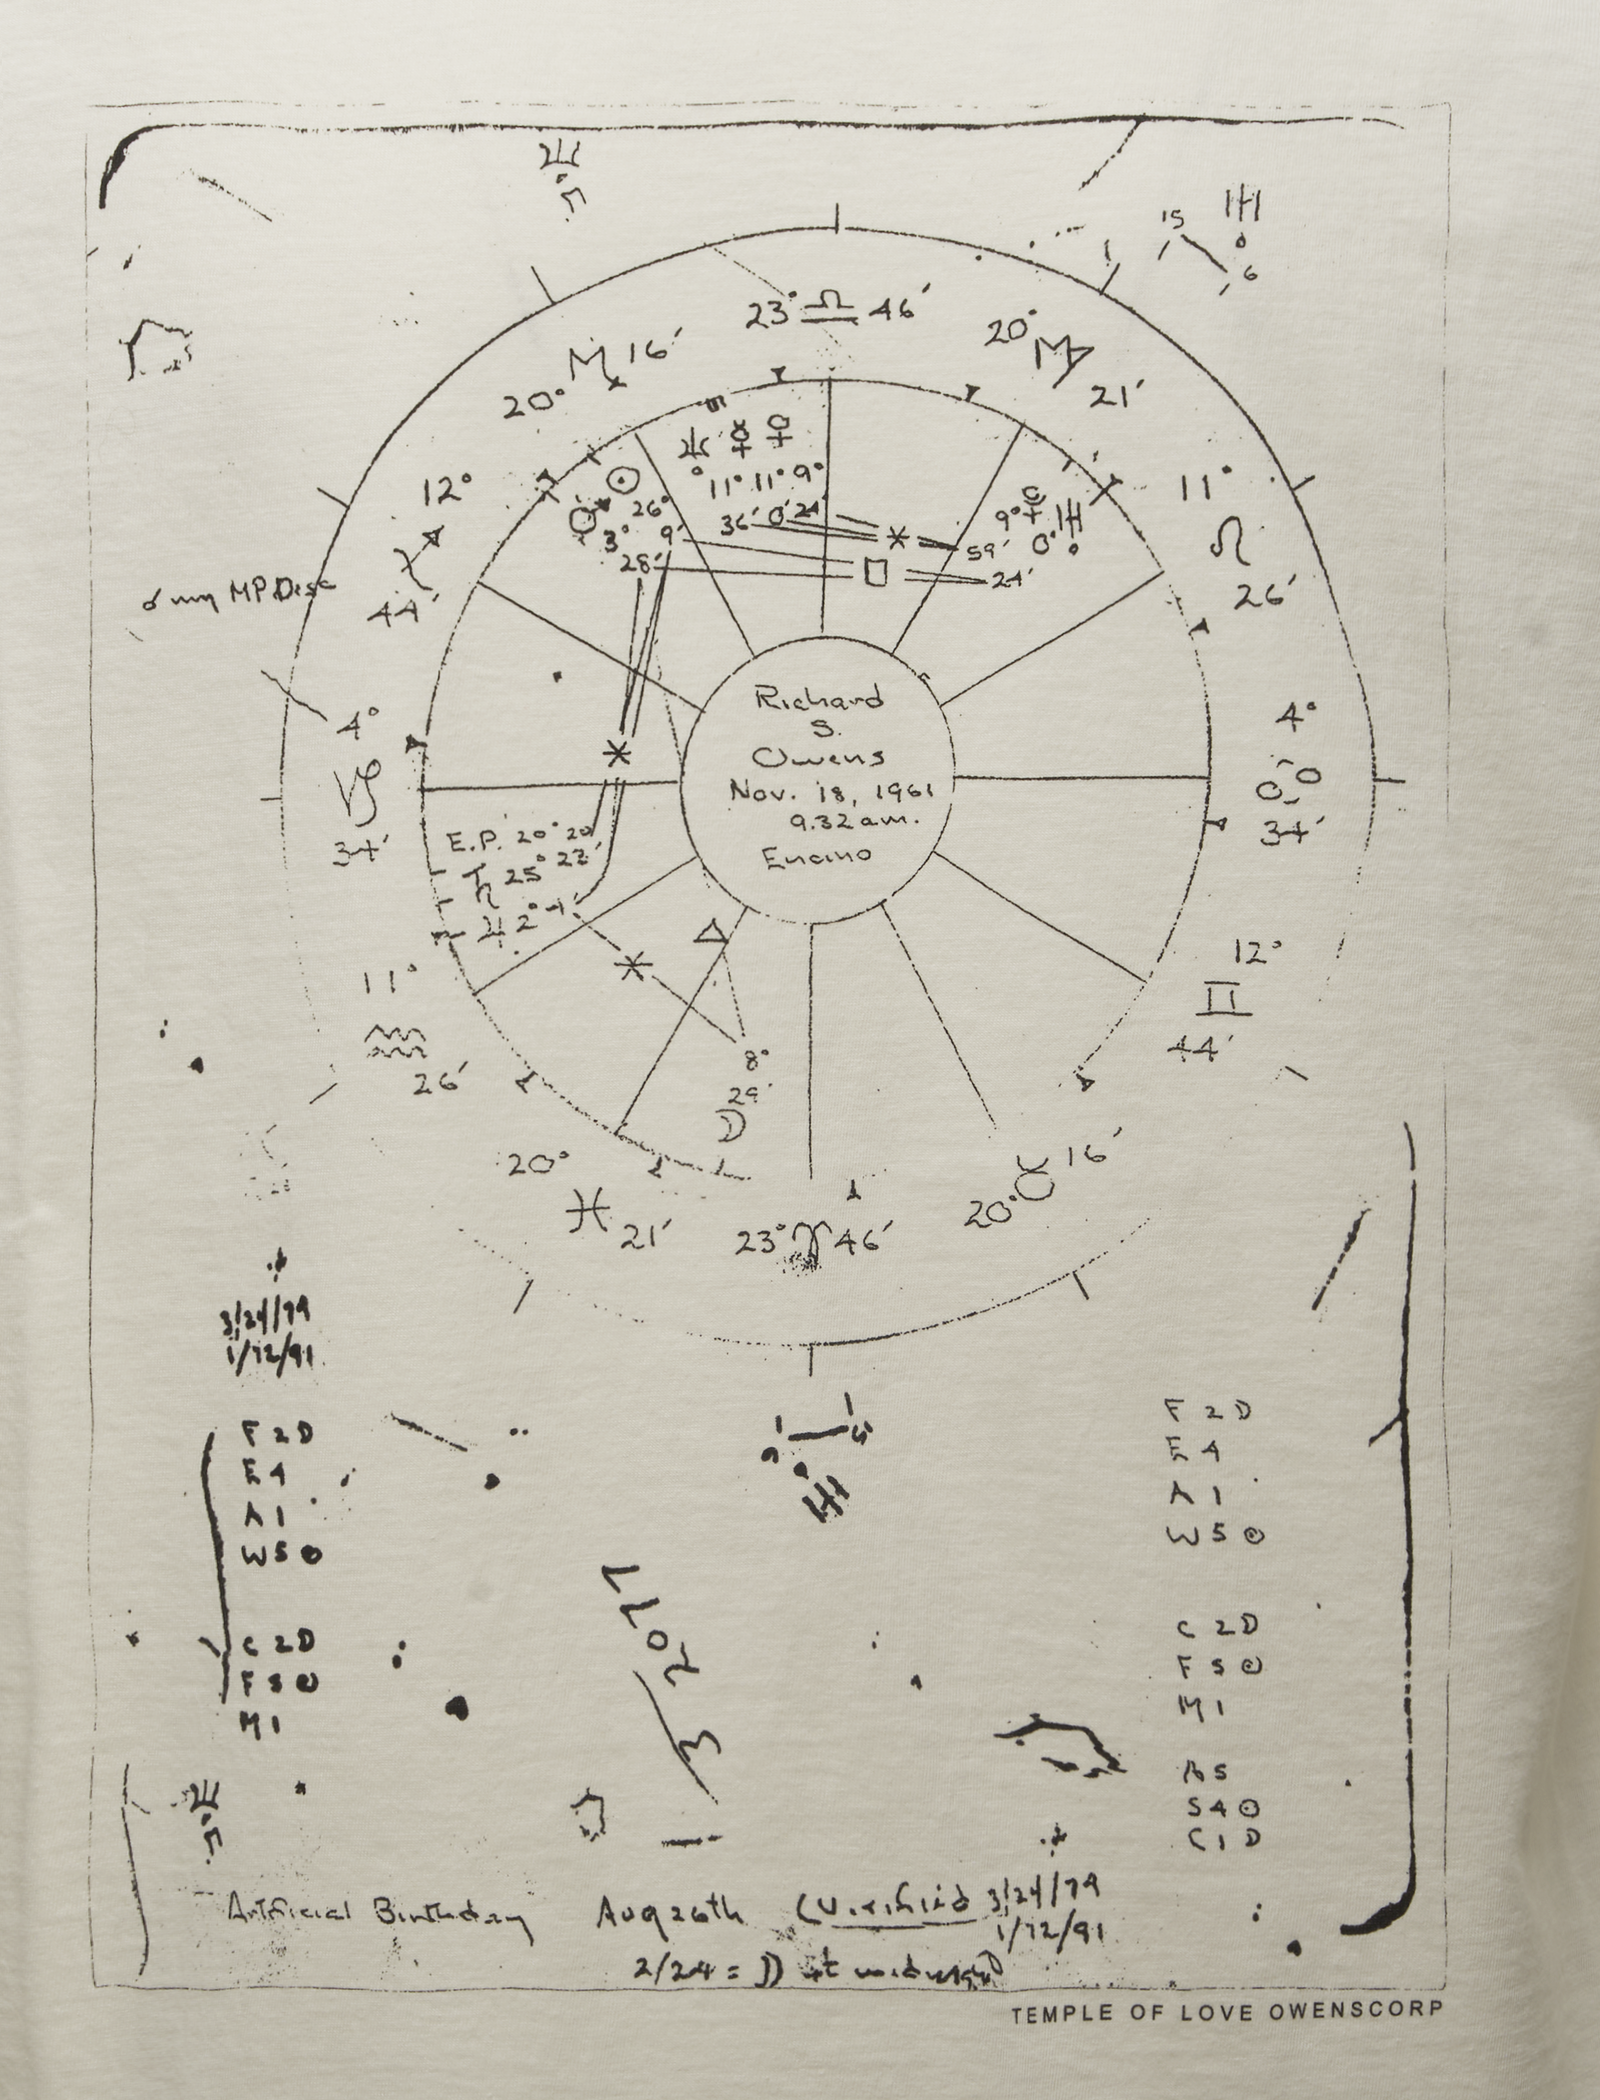 15
6
23° ♎ 46′
20° ♏ 16′
20° ♍ 21′
12° ♐ 44′
11° ♌ 26′
♆ ☿ ♀
11° 11° 9°
36′ 0′ 24′
☉ 26° 9′
♂ 3° 28′
9° 0°
59′ 24′
☌ my MP Desc
Richard
S.
Owens
Nov. 18, 1961
9.32 am.
Encino
4° ♑ 34′
4° ♋ 34′
E.P. 20° 20′
25° 22′
♃ 2°
11° ♒ 26′
12° ♊ 44′
8°
29′
☽
20° ♓ 21′
23° ♈ 46′
20° ♉ 16′
3/24/79
1/12/91
F 2 D
E 4
A 1
W 5 ☉
C 2 D
F 5 ☉
M 1
F 2 D
E 4
A 1
W 5 ☉
C 2 D
F 5 ☉
M 1
A 5
S 4 ☉
C 1 D
Artificial Birthday Aug 26th (Verified 3/24/79
1/12/91
2/24 = ☽ at midnight
TEMPLE OF LOVE OWENSCORP